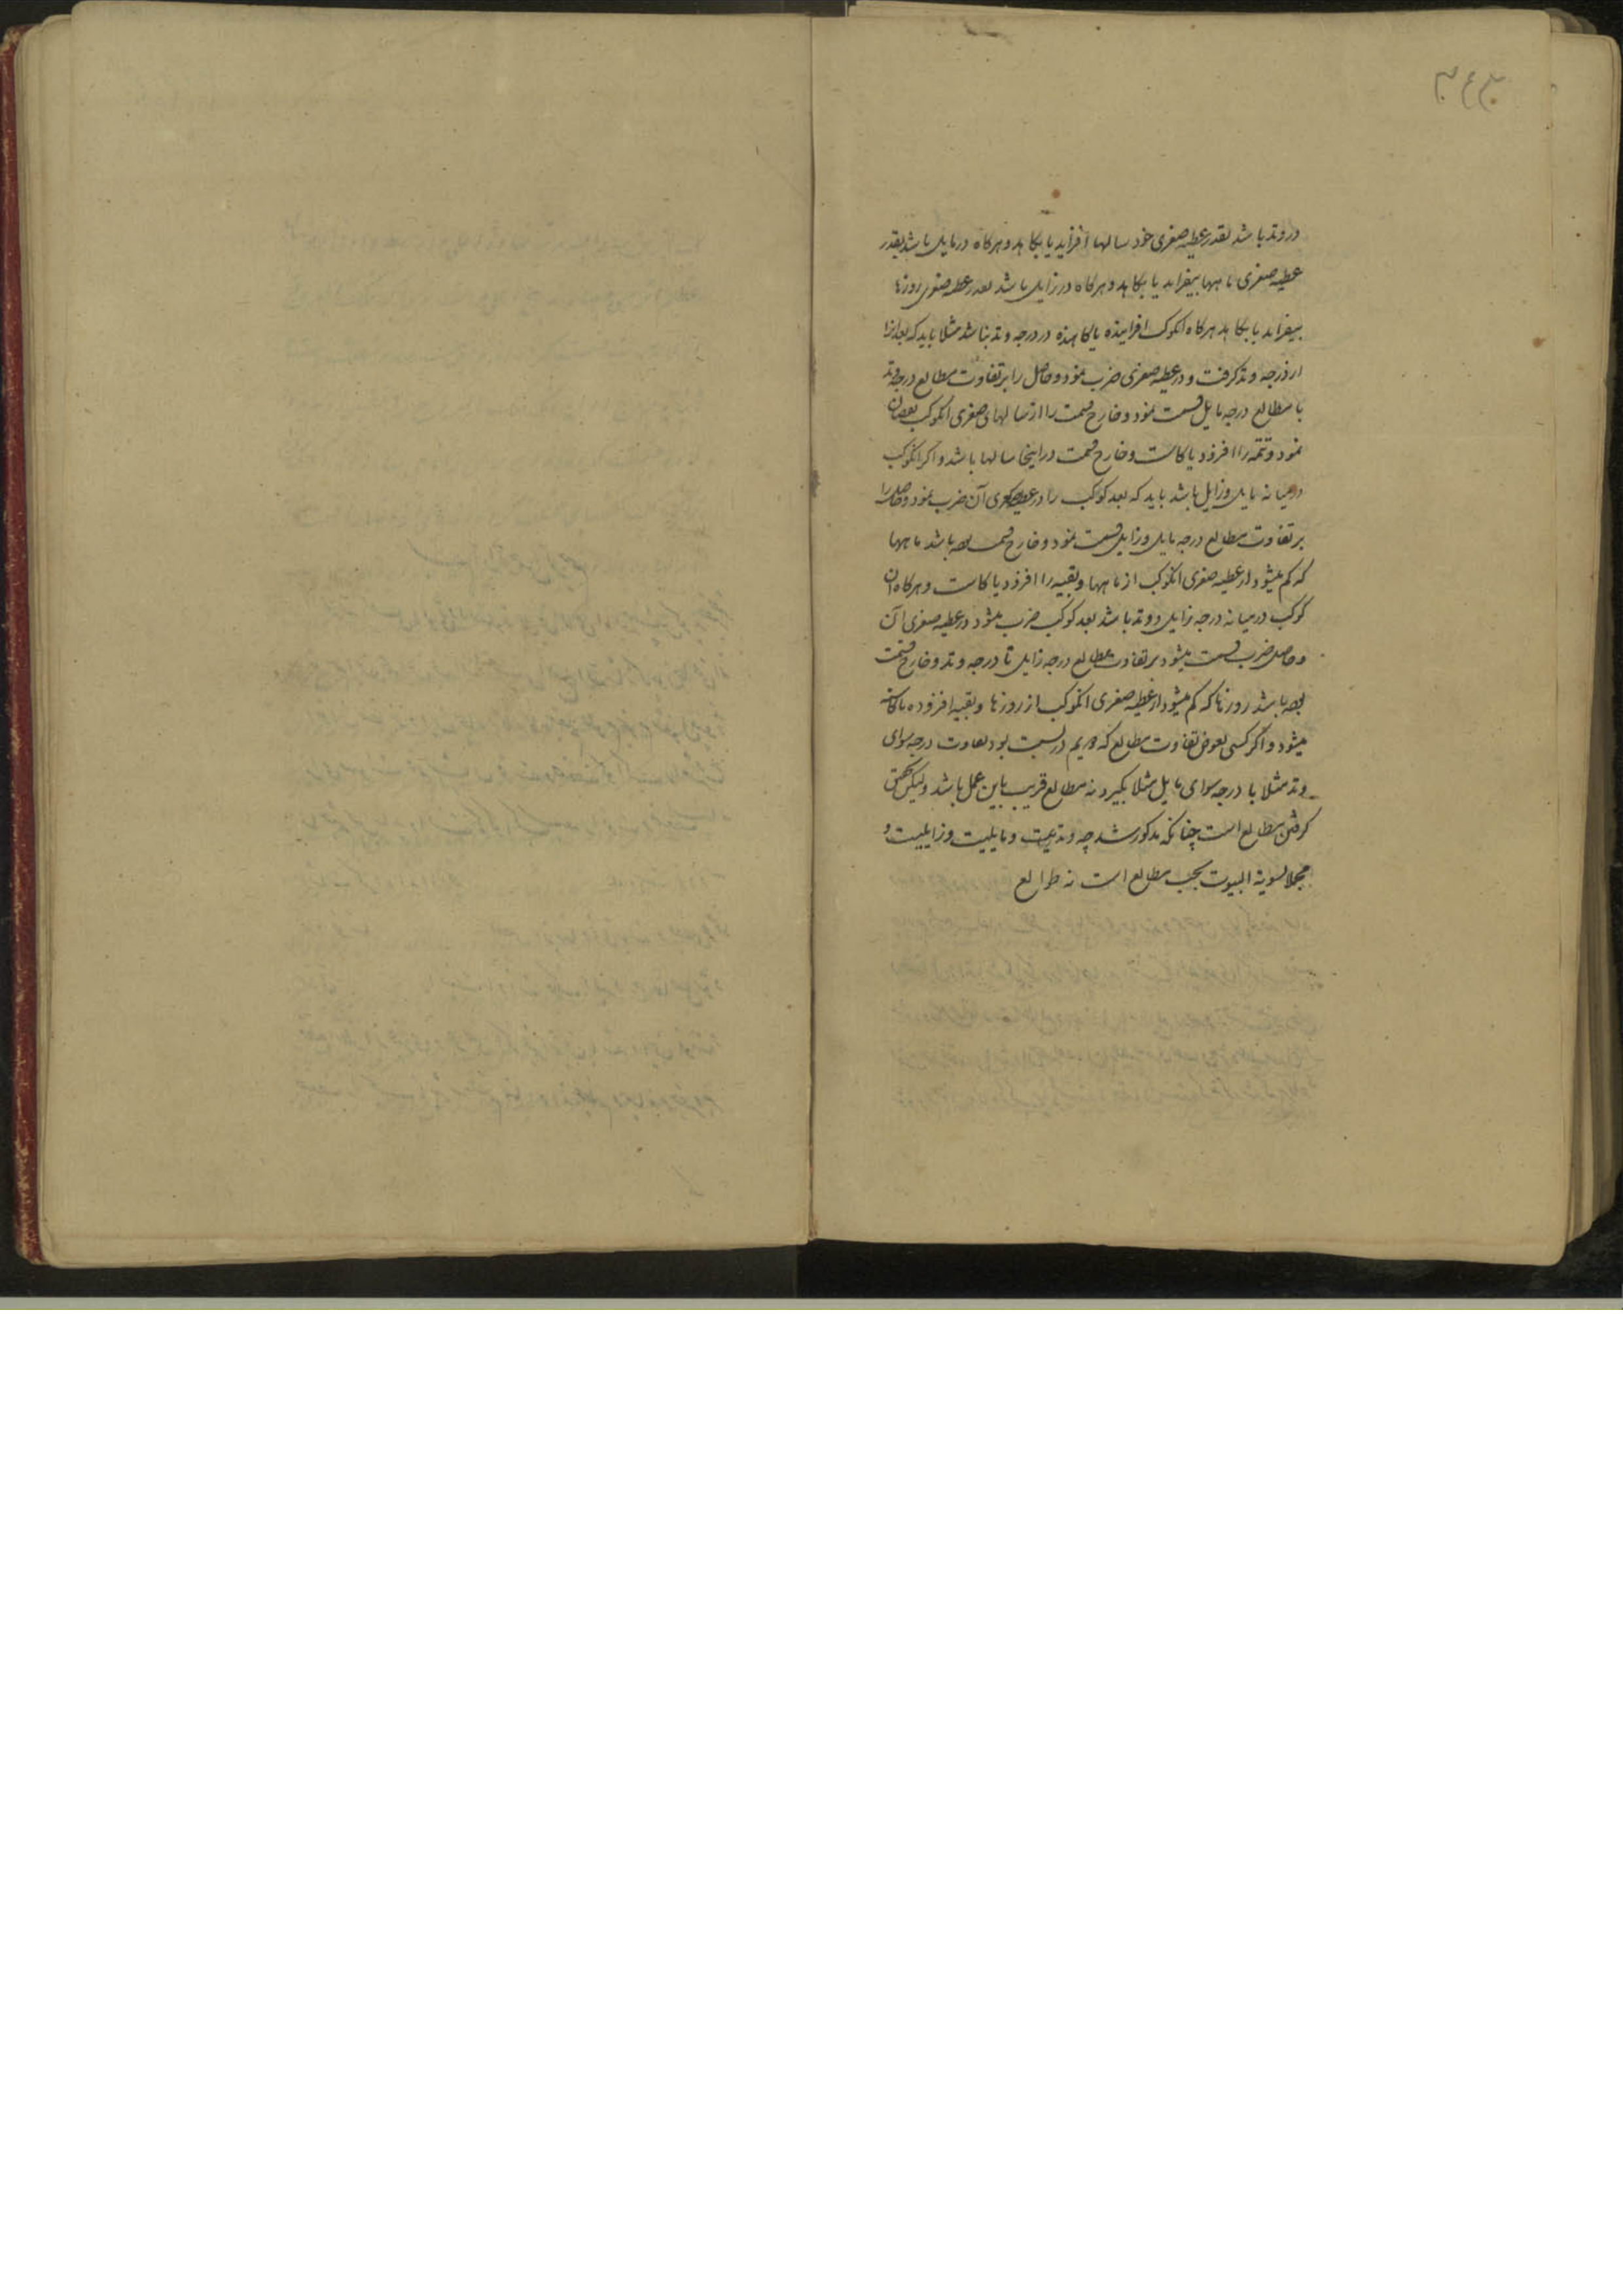 در وتد باشد بقدر عطیه صغری خود سالها افزاید یا بکاهد و هرکاه در مایل باشد بقدر
عطیه صغری ماهها بیفزاید یا بکاهد و هرکاه در زایل باشد بقدر عطیه صغری روزها
بیفزاید یا بکاهد هرکاه انکوکب افزاینده یا کاهنده در درجه وتد نباشد مثلا باید که بعد انرا
از درجه وتد کرفت و در عطیه صغری ضرب نمود و حاصل را بر تفاوت مطالع درجه وتد
با مطالع درجه مایل قسمت نمود و خارج قسمت را از سالهای صغری انکوکب نقصان
نمود و تتمه را افزود یا کاست و خارج قسمت در اینجا سالها باشد و اکر انکوکب
در میانه مایل و زایل باشد باید که بعد کوکب را در عطیه صغری آن ضرب نمود و حاصل را
بر تفاوت مطالع درجه مایل و زایل قسمت نمود و خارج قسمت باشد ماهها
که کم میشود از عطیه صغری انکوکب از ماهها و بقیه را افزود یا کاست و هرکاه ان
کوکب در میانه درجه زایل و وتد باشد بعد کوکب ضرب میشود در عطیه صغری آن
و حاصل ضرب قسمت میشود بر تفاوت مطالع درجه زایل تا درجه وتد و خارج قسمت
باشد روزها که کم میشود از عطیه صغری انکوکب از روزها و بقیه افزوده یا کاسته
میشود و اکر کسی بعوض تفاوت مطالع که در نسبت بود تفاوت درجه سوای
وتد مثلا با درجه سوای مایل مثلا بکیرد نه مطالع قریب باین عمل باشد ولیکن
کرفتن مطالع است چنانکه مذکور شد چه وتدیت و مایلیت و زایلیت و
مجملا تسویة البیوت بحسب مطالع است نه طوالع